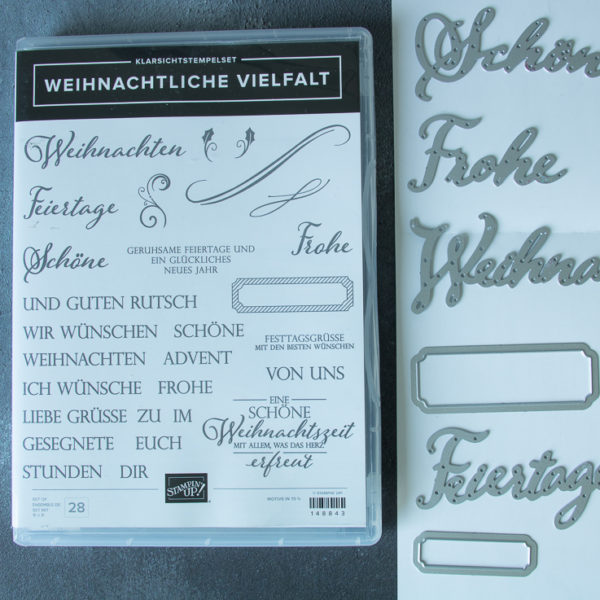 KLARSICHTSTEMPELSET
WEIHNACHTLICHE VIELFALT
Weihnachten
Feiertage
Schöne
GERUHSAME FEIERTAGE UND
EIN GLÜCKLICHES
NEUES JAHR
Frohe
UND GUTEN RUTSCH
WIR WÜNSCHEN SCHÖNE
WEIHNACHTEN ADVENT
ICH WÜNSCHE FROHE
LIEBE GRÜSSE ZU IM
GESEGNETE EUCH
STUNDEN DIR
FESTTAGSGRÜSSE
MIT DEN BESTEN WÜNSCHEN
VON UNS
EINE
SCHÖNE
Weihnachtszeit
MIT ALLEM, WAS DAS HERZ
erfreut
STAMPIN' UP!
SET OF
ENSEMBLE DE
SET MIT
28
MOTIVE IN 75 %
© STAMPIN' UP!
148843
Schön
Frohe
Weihna
Feiertage